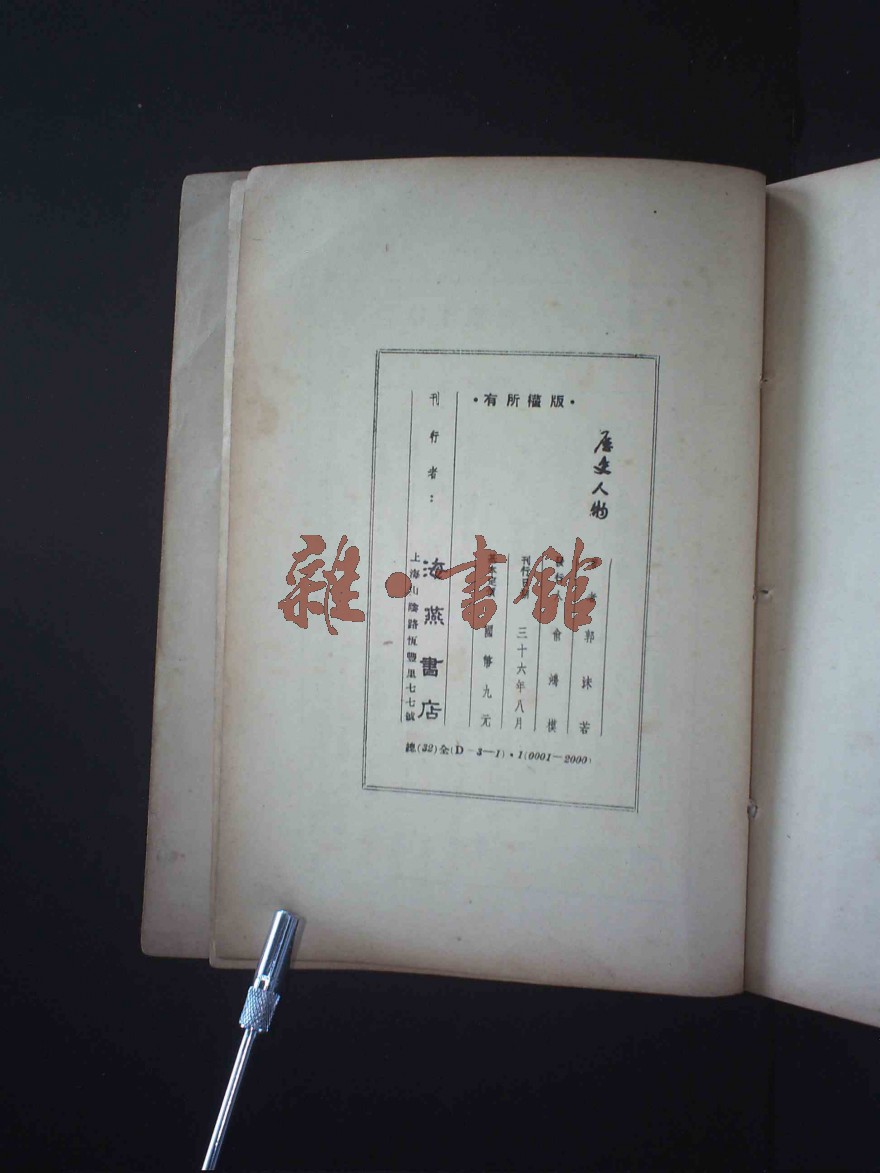 ·版權所有·
歷史人物
著者 郭沫若
發行 俞鴻模
刊行日期 三十六年八月
國幣九元
刊行者：
海燕書店
上海山陰路恆豐里七七號
總(32)全(D—3—1)·1(0001—2000)
雜·書館